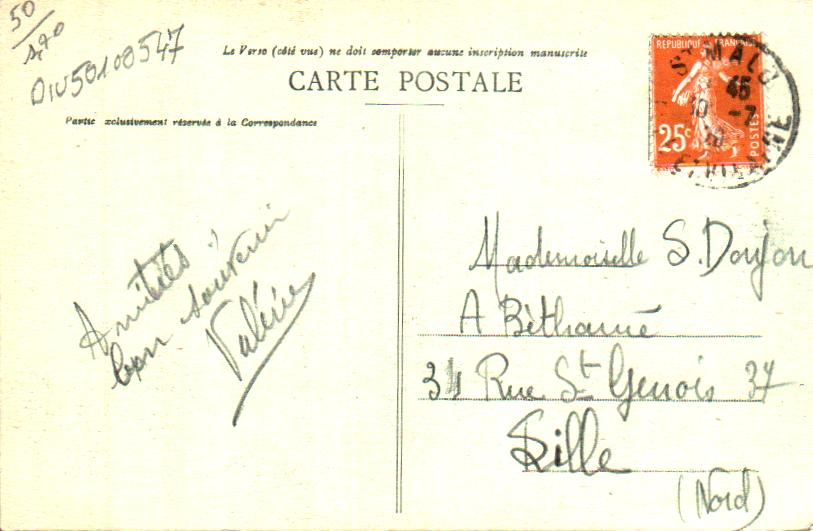 50
190
DIV50100547
Le Verso (côté vue) ne doit comporter aucune inscription manuscrite
CARTE POSTALE
Partie exclusivement réservée à la Correspondance
REPUBLIQUE FRANÇAISE
25c
POSTES
ST MALO
45
10 -7
Amitiés
bon souvenir
Valérie
Mademoiselle S. Doujon
A Béthanie
34 Rue St Genois 37
Lille
(Nord)